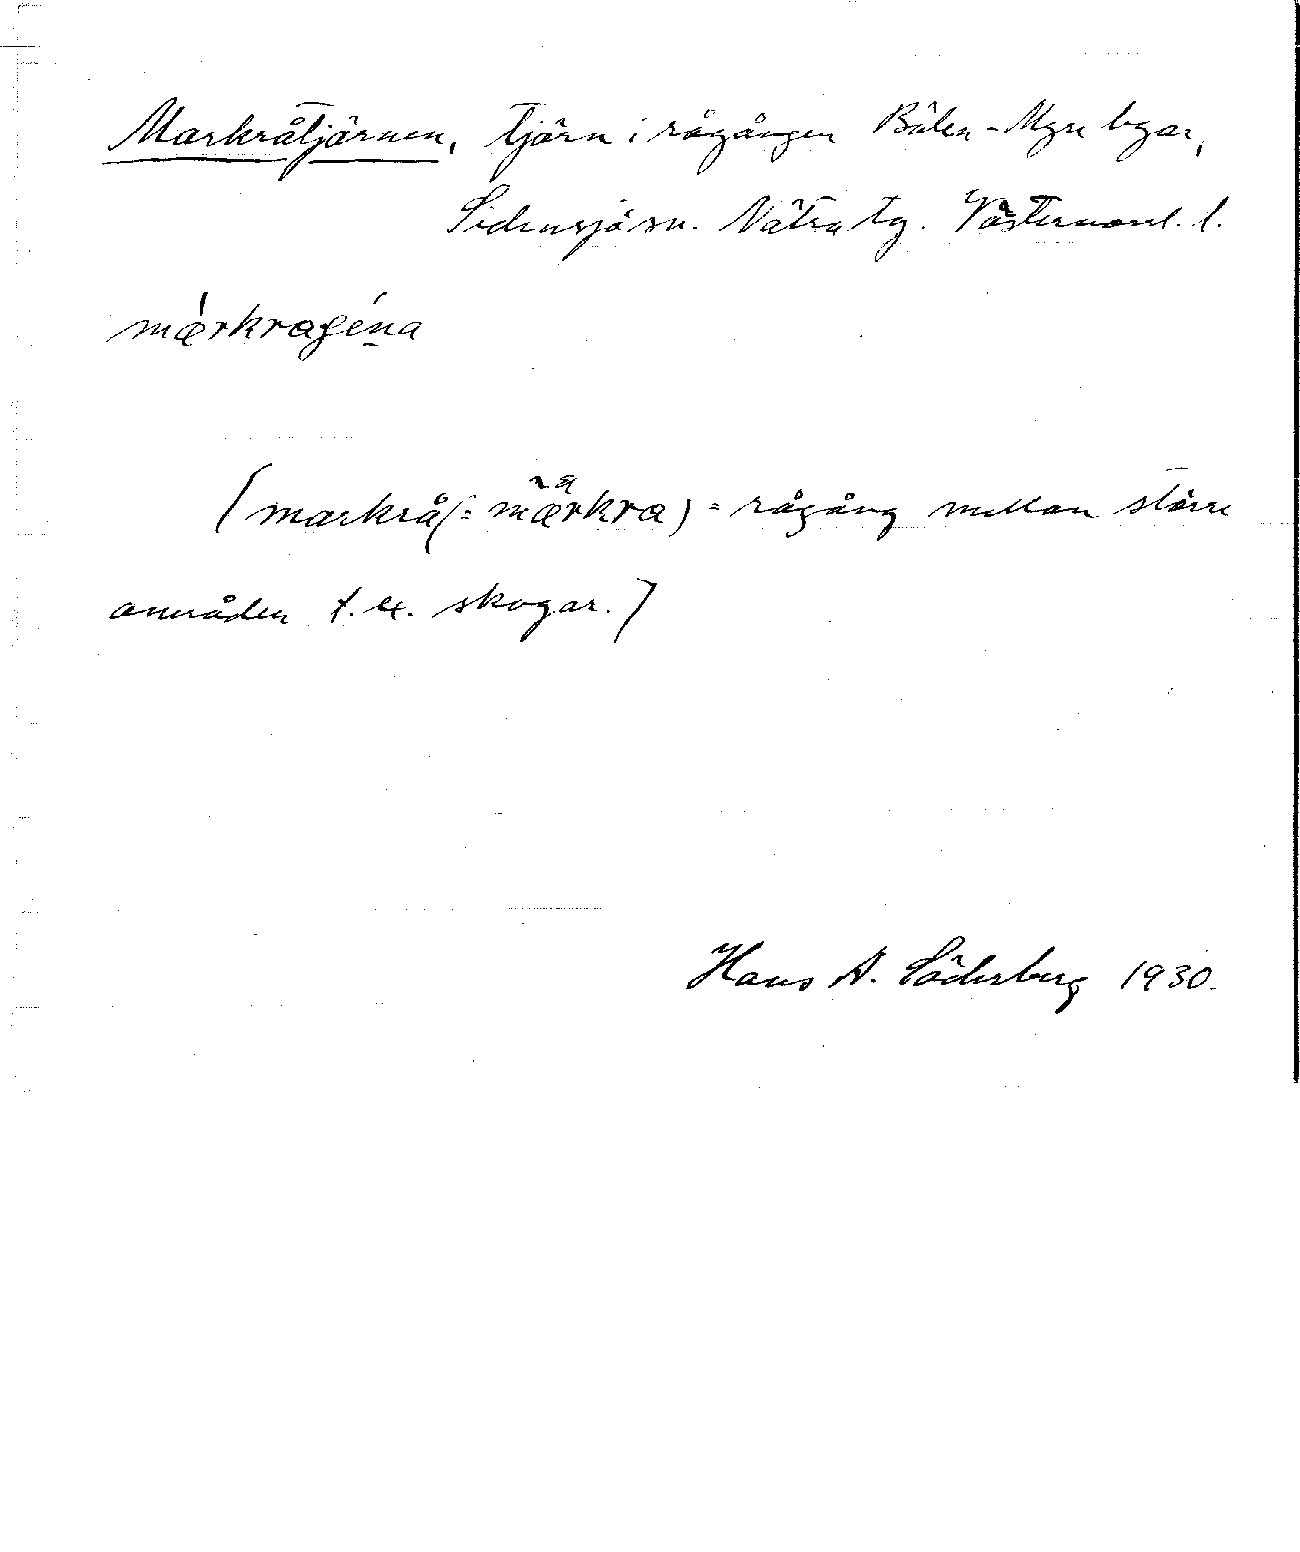 Markråtjärnen, tjärn i rågången Bålen - Myre byar,
Sidensjö sn. Nätra tg. Västernorrl. l.
mærkragéna
(markrå (= mærkra) = rågång mellan större
områden t. ex. skogar.)
Hans A. Söderberg 1930.